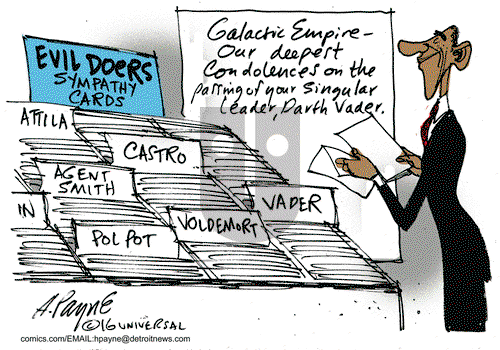 Galactic Empire—
Our deepest
Condolences on the
passing of your Singular
Leader, Darth Vader.
EVIL DOERS
SYMPATHY
CARDS
ATTILA
CASTRO
AGENT
SMITH
IN
VADER
VOLDEMORT
POL POT
A. Payne
©16 UNIVERSAL
comics.com/EMAIL:hpayne@detroitnews.com